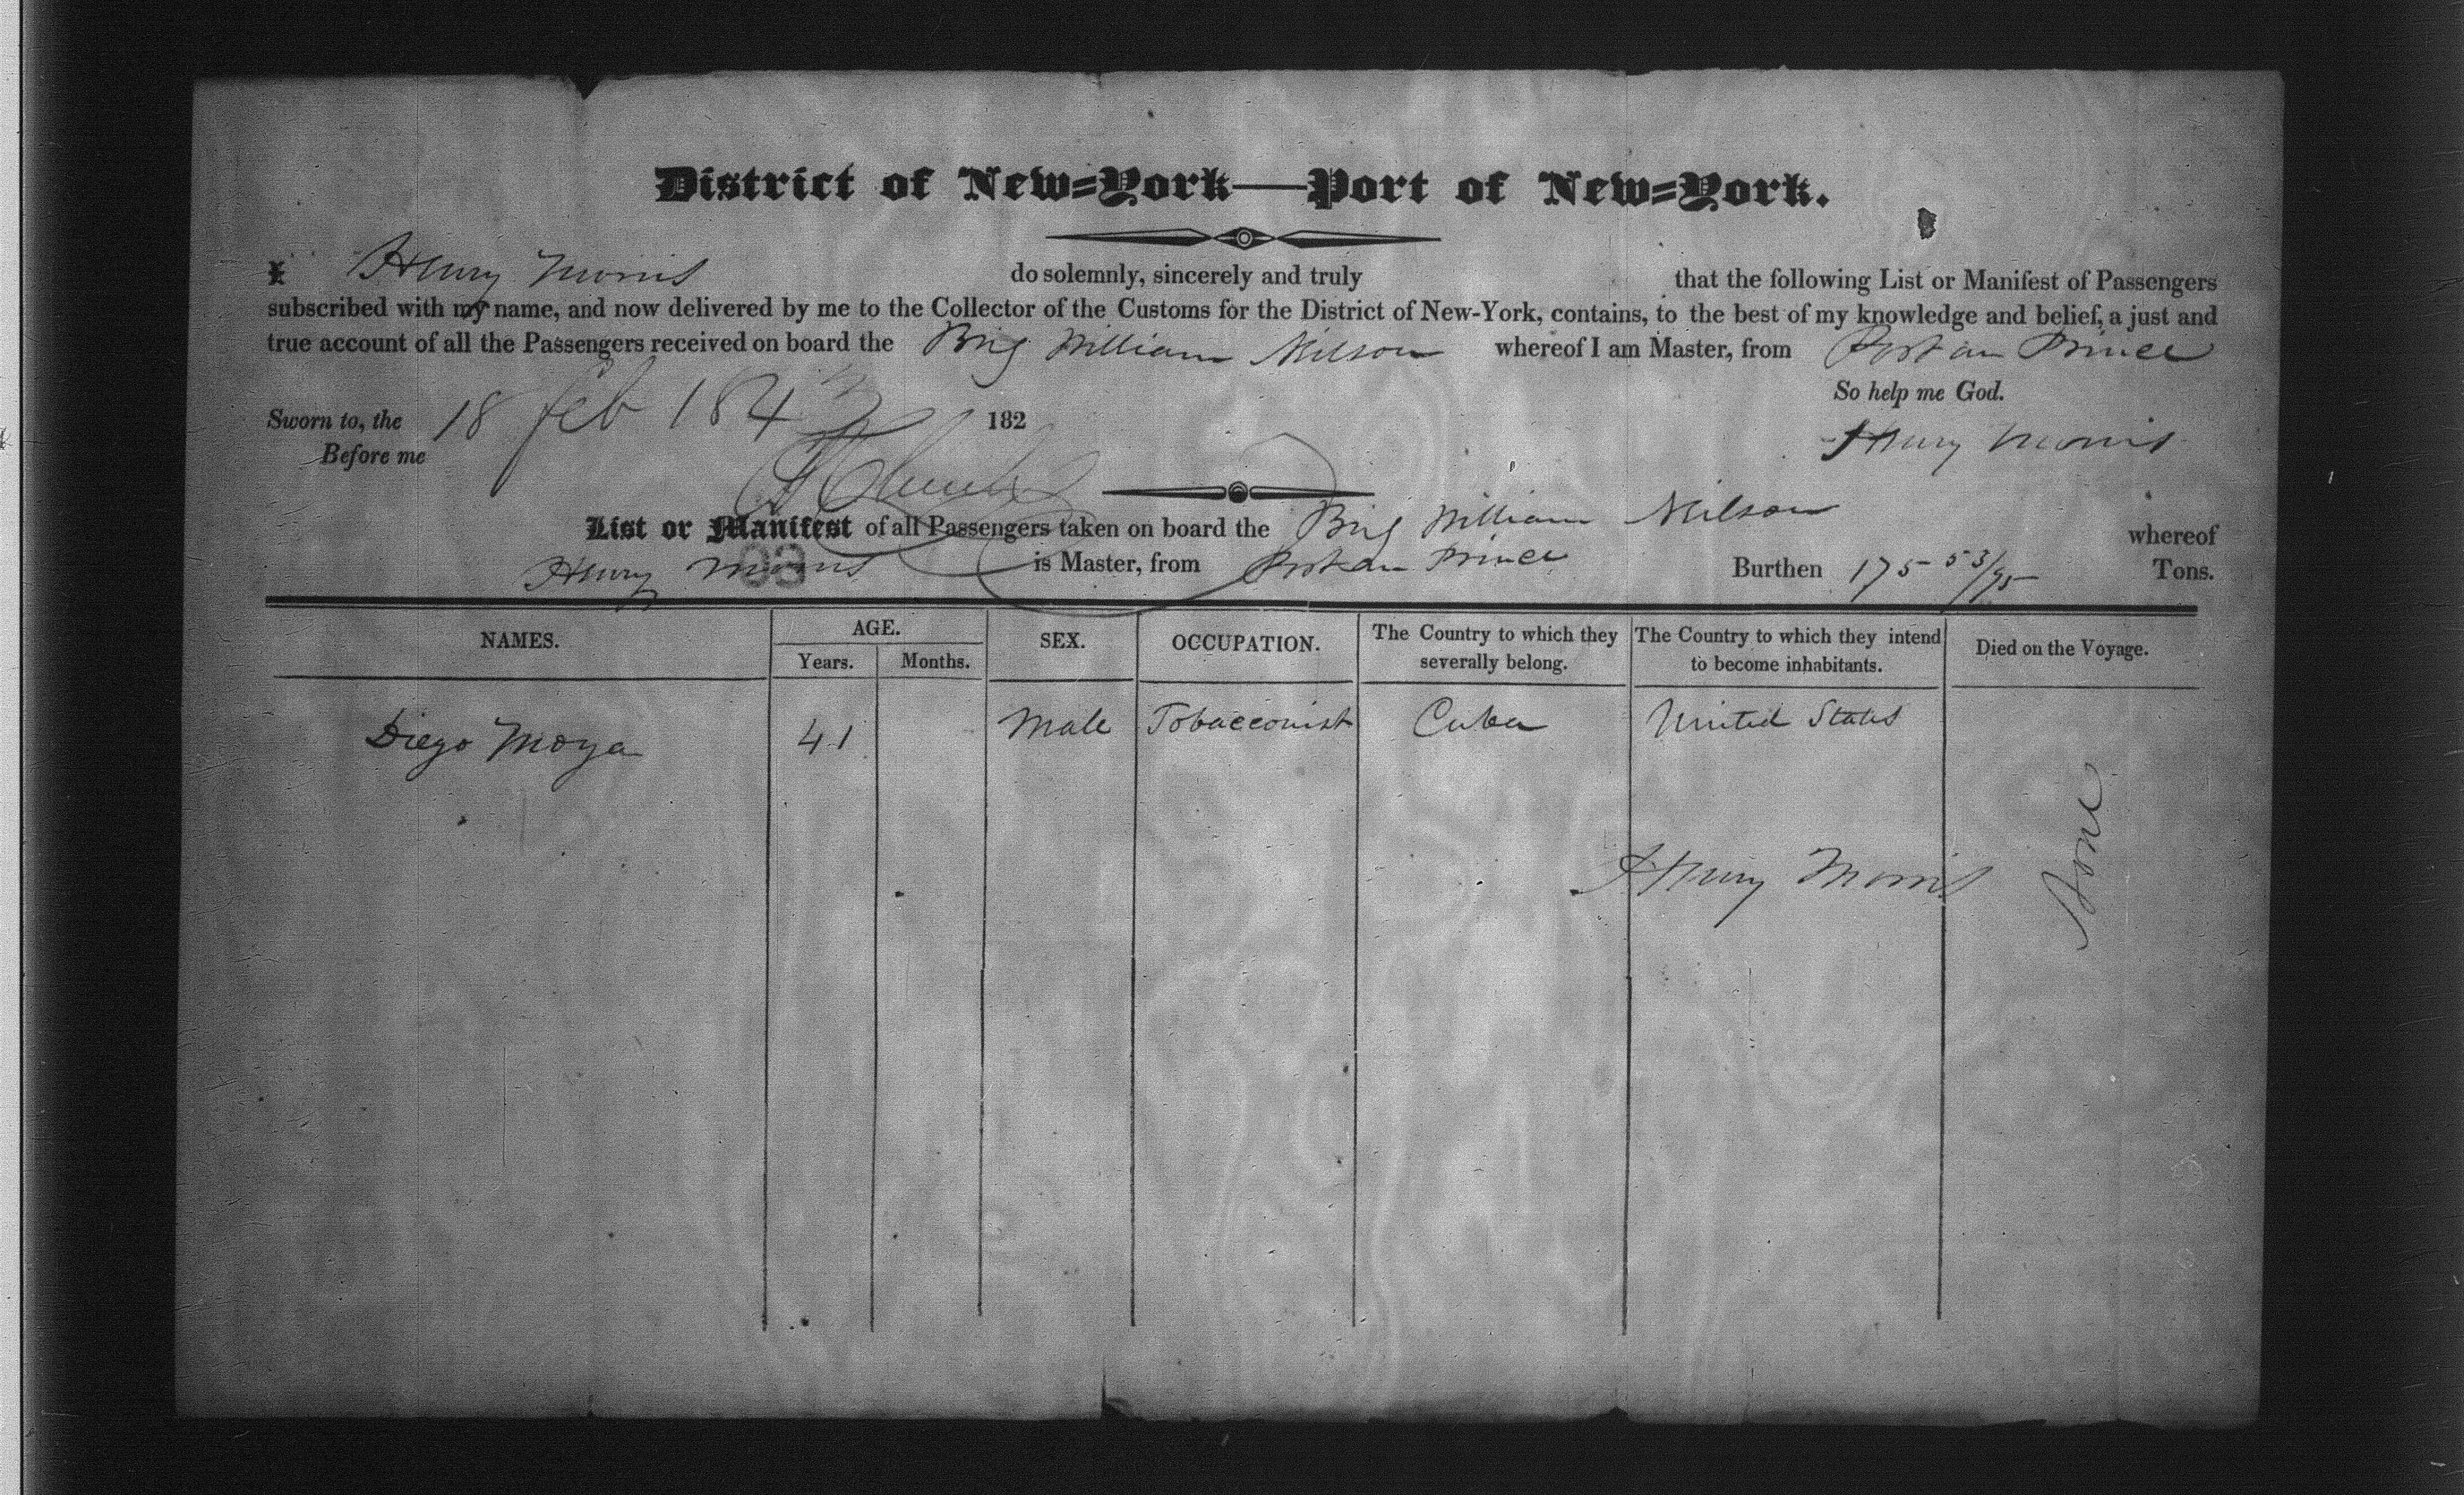 District of New=York—Port of New=York.
I Henry Morris do solemnly, sincerely and truly that the following List or Manifest of Passengers
subscribed with my name, and now delivered by me to the Collector of the Customs for the District of New-York, contains, to the best of my knowledge and belief, a just and
true account of all the Passengers received on board the Brig William Neilson whereof I am Master, from Port au Prince
So help me God.
Sworn to, the 18 Feb 1843 182
Henry Morris
Before me
List or Manifest of all Passengers taken on board the Brig William Neilson whereof
Henry Morris is Master, from Port au Prince Burthen 175 53/95 Tons.
NAMES. AGE. SEX. OCCUPATION. The Country to which they severally belong. The Country to which they intend to become inhabitants. Died on the Voyage.
Years. Months.
Diego Moya 41 Male Tobacconist Cuba United States
None
Henry Morris